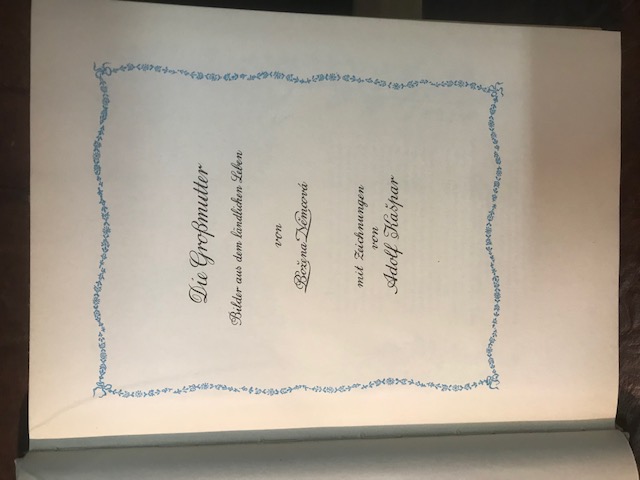 Die Großmutter
Bilder aus dem ländlichen Leben
von
Božena Němcová
mit Zeichnungen
von
Adolf Kašpar